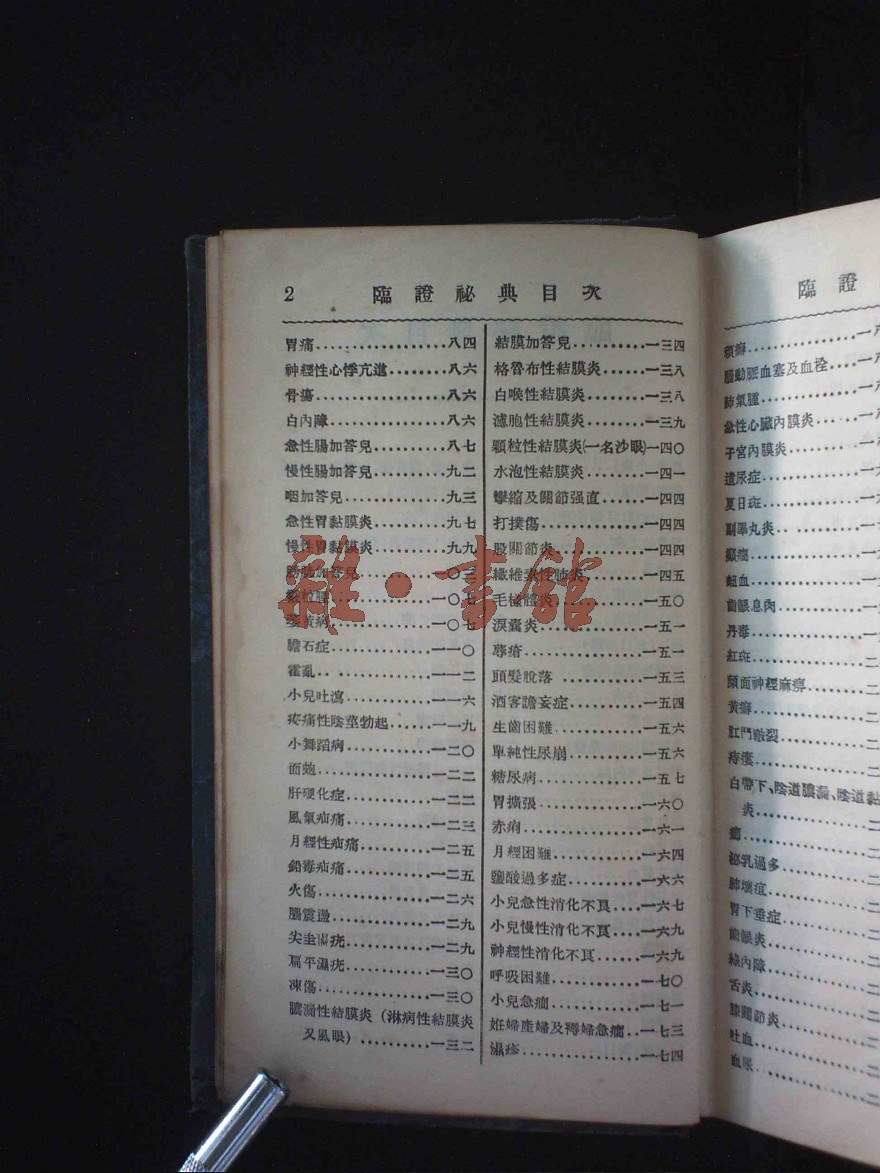 2 臨證祕典目次
胃痛……八四
神經性心悸亢進……八六
骨瘍……八六
白內障……八六
急性腸加答兒……八七
慢性腸加答兒……九二
咽加答兒……九三
急性胃黏膜炎……九七
慢性胃黏膜炎……九九
加答兒……一〇三
粒腫……一〇七
萎黃病……一〇七
膽石症……一一〇
霍亂……一一二
小兒吐瀉……一一六
疼痛性陰莖勃起……一一九
小舞蹈病……一二〇
面皰……一二二
肝硬化症……一二二
風氣疝痛……一二三
月經性疝痛……一二五
鉛毒疝痛……一二五
火傷……一二六
腦震盪……一二九
尖圭濕疣……一二九
扁平濕疣……一三〇
凍傷……一三〇
膿漏性結膜炎（淋病性結膜炎
又風眼）……一三二
結膜加答兒……一三四
格魯布性結膜炎……一三八
白喉性結膜炎……一三八
濾胞性結膜炎……一三九
顆粒性結膜炎(一名沙眼)一四〇
水泡性結膜炎……一四一
攣縮及關節强直……一四四
打撲傷……一四四
股關節炎……一四四
纖維素性肺炎……一四五
毛樣體炎……一五〇
淚囊炎……一五一
蓐瘡……一五一
頭髮脫落……一五三
酒客譫妄症……一五四
生齒困難……一五六
單純性尿崩……一五六
糖尿病……一五七
胃擴張……一六〇
赤痢……一六一
月經困難……一六四
鹽酸過多症……一六六
小兒急性消化不良……一六七
小兒慢性消化不良……一六九
神經性消化不良……一六九
呼吸困難……一七〇
小兒急癇……一七一
姙婦產婦及褥婦急癇……一七三
濕疹……一七四
臨證
癲癇……一八
腦動脈血塞及血栓……一八
肺氣腫……一八
急性心臟內膜炎……一八
子宮內膜炎……一
遺尿症……一
夏日斑……一
副睪丸炎……一
癲癇……一
衄血……一
齒齦息肉……一
丹毒……一
紅斑……二
顏面神經麻痹……二
黃癬……二
肛門皸裂……二
痔瘻……二
白帶下、陰道膿漏、陰道黏
炎……二
泌乳過多……二
肺壞疽……二
胃下垂症……二
齒齦炎……二
綠內障……二
舌炎……二
膝關節炎……二
吐血……二
血尿……二
雜·書館